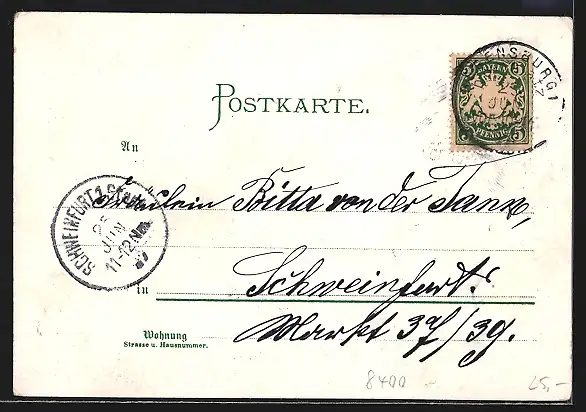 REGENSBURG 1
BAYERN
5 5
PFENNIG
POSTKARTE.
An
Fräulein Bitta von der Tann,
SCHWEINFURT 1 Stadt
25
JUN
11-12 Nm
in Schweinfurt.
Markt 37/39.
Wohnung
Strasse u. Hausnummer.
8400 - 25,-